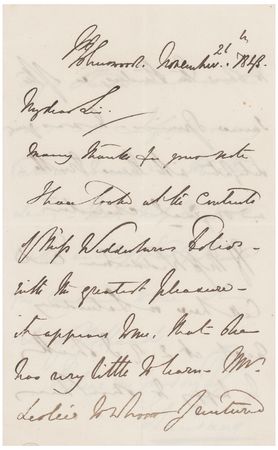 November 21st 1848.
My dear Sir.
Many thanks for your note
I have looked at the contents
of Miss Folio -
with the greatest pleasure -
it appears to me, that she
has very little to learn - Mr
Leslie to whom I ventured